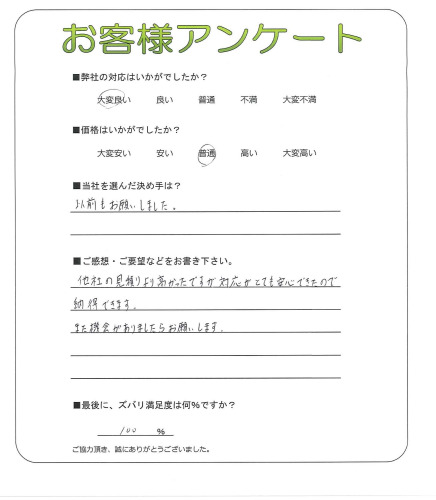 お客様アンケート
■弊社の対応はいかがでしたか？
大変良い 良い 普通 不満 大変不満
■価格はいかがでしたか？
大変安い 安い 普通 高い 大変高い
■当社を選んだ決め手は？
以前もお願いしました。
■ご感想・ご要望などをお書き下さい。
他社の見積りより高かったですが対応がとても安心できたので
納得できます。
また機会がありましたらお願いします。
■最後に、ズバリ満足度は何%ですか？
100 %
ご協力頂き、誠にありがとうございました。